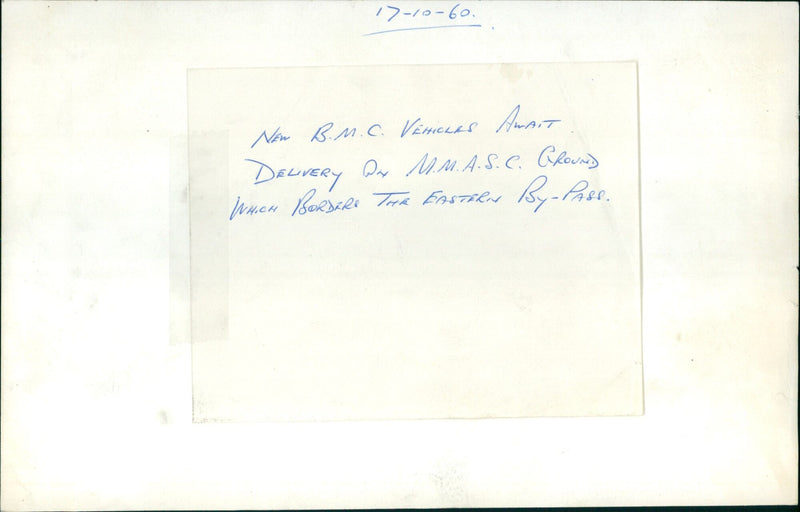 17-10-60.
New B.M.C. Vehicles Await
Delivery On M.M.A.S.C. Ground
Which Borders The Eastern By-Pass.